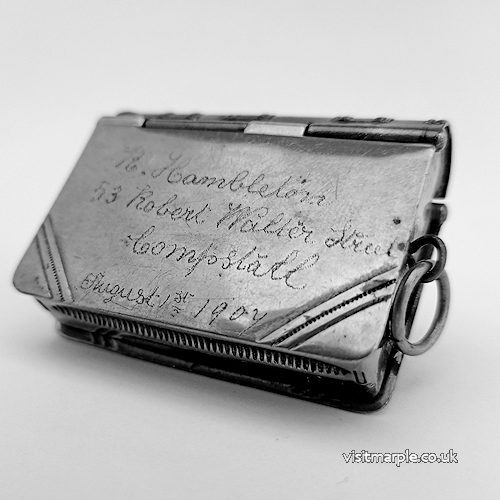 R. Hambleton
53 Robert Walter Street
Compstall
August 1st 1904
U
visitmarple.co.uk